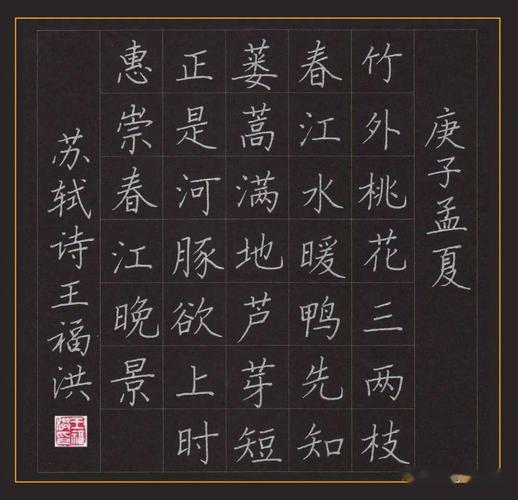 庚子孟夏
竹外桃花三两枝
春江水暖鸭先知
蒌蒿满地芦芽短
正是河豚欲上时
惠崇春江晚景
苏轼诗王福洪
王福洪印